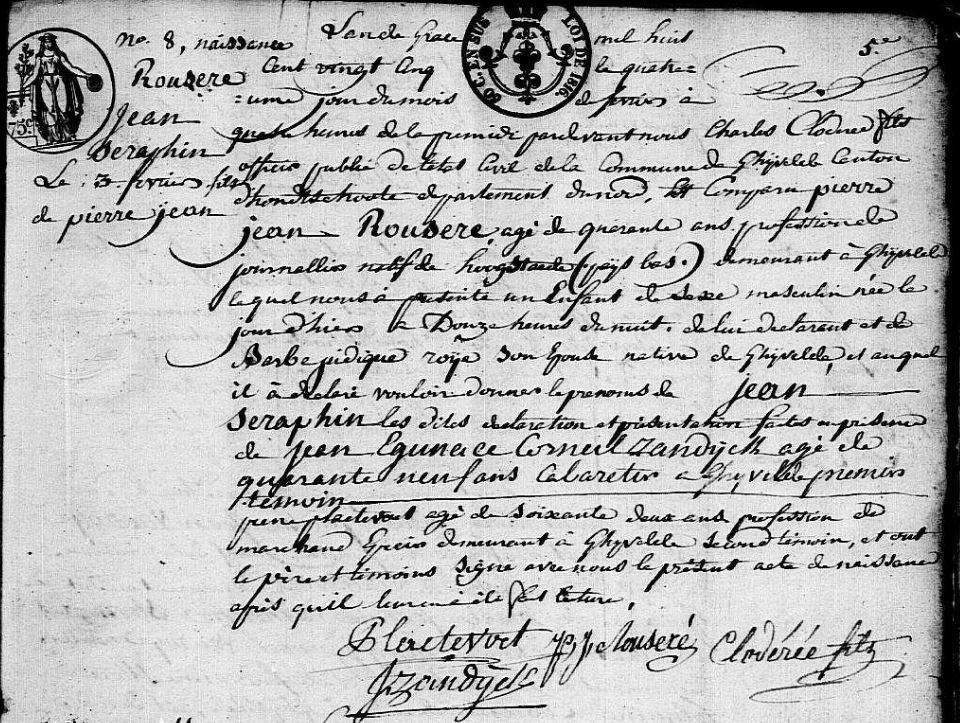 no. 8, naissance
Rousere
Jean
Seraphin
Le 3 fevrier fils
de pierre jean
75c
80 C. EN SUS LOI DE 1816.
5.e
L'an de Grace mil huit
Cent vingt Cinq le quatri=
=eme jour du mois de fevrier à
quatre heures de la pardevant nous Charles Cloderée fils
officier public de l'etat Civil de la Commune de Ghyvelde Canton
d'hondschoote departement du nord, Est Comparu pierre
jean Rousere, agé de quarante ans profession de
journallier natif de hoogstaede (pays bas.) demeurant à Ghyvelde
lequel nous à presenté un Enfant de Sexe masculin née le
jour d'hier a Douze heures du nuit. de lui declarant et de
Barbe judique roÿe Son Epouse native de Ghyvelde, et auquel
il à declaré vouloir donner le prenoms de jean
Seraphin les dites declaration et présentation faites en présence
de jean Egunace Corneil Zandÿck agé de
quarante neuf ans Cabaretier a Ghyvelde premier
témoin
pierre plaetevoet agé de soixante deux ans profession de
marchand Epicier demeurant à Ghyvelde Second témoin, et ont
le père et témoins Signé avec nous le présent acte de naissance
après qu'il leur en à été fait lecture.
Plaetevoet PJ Rouseré Cloderée fils
JZandÿck